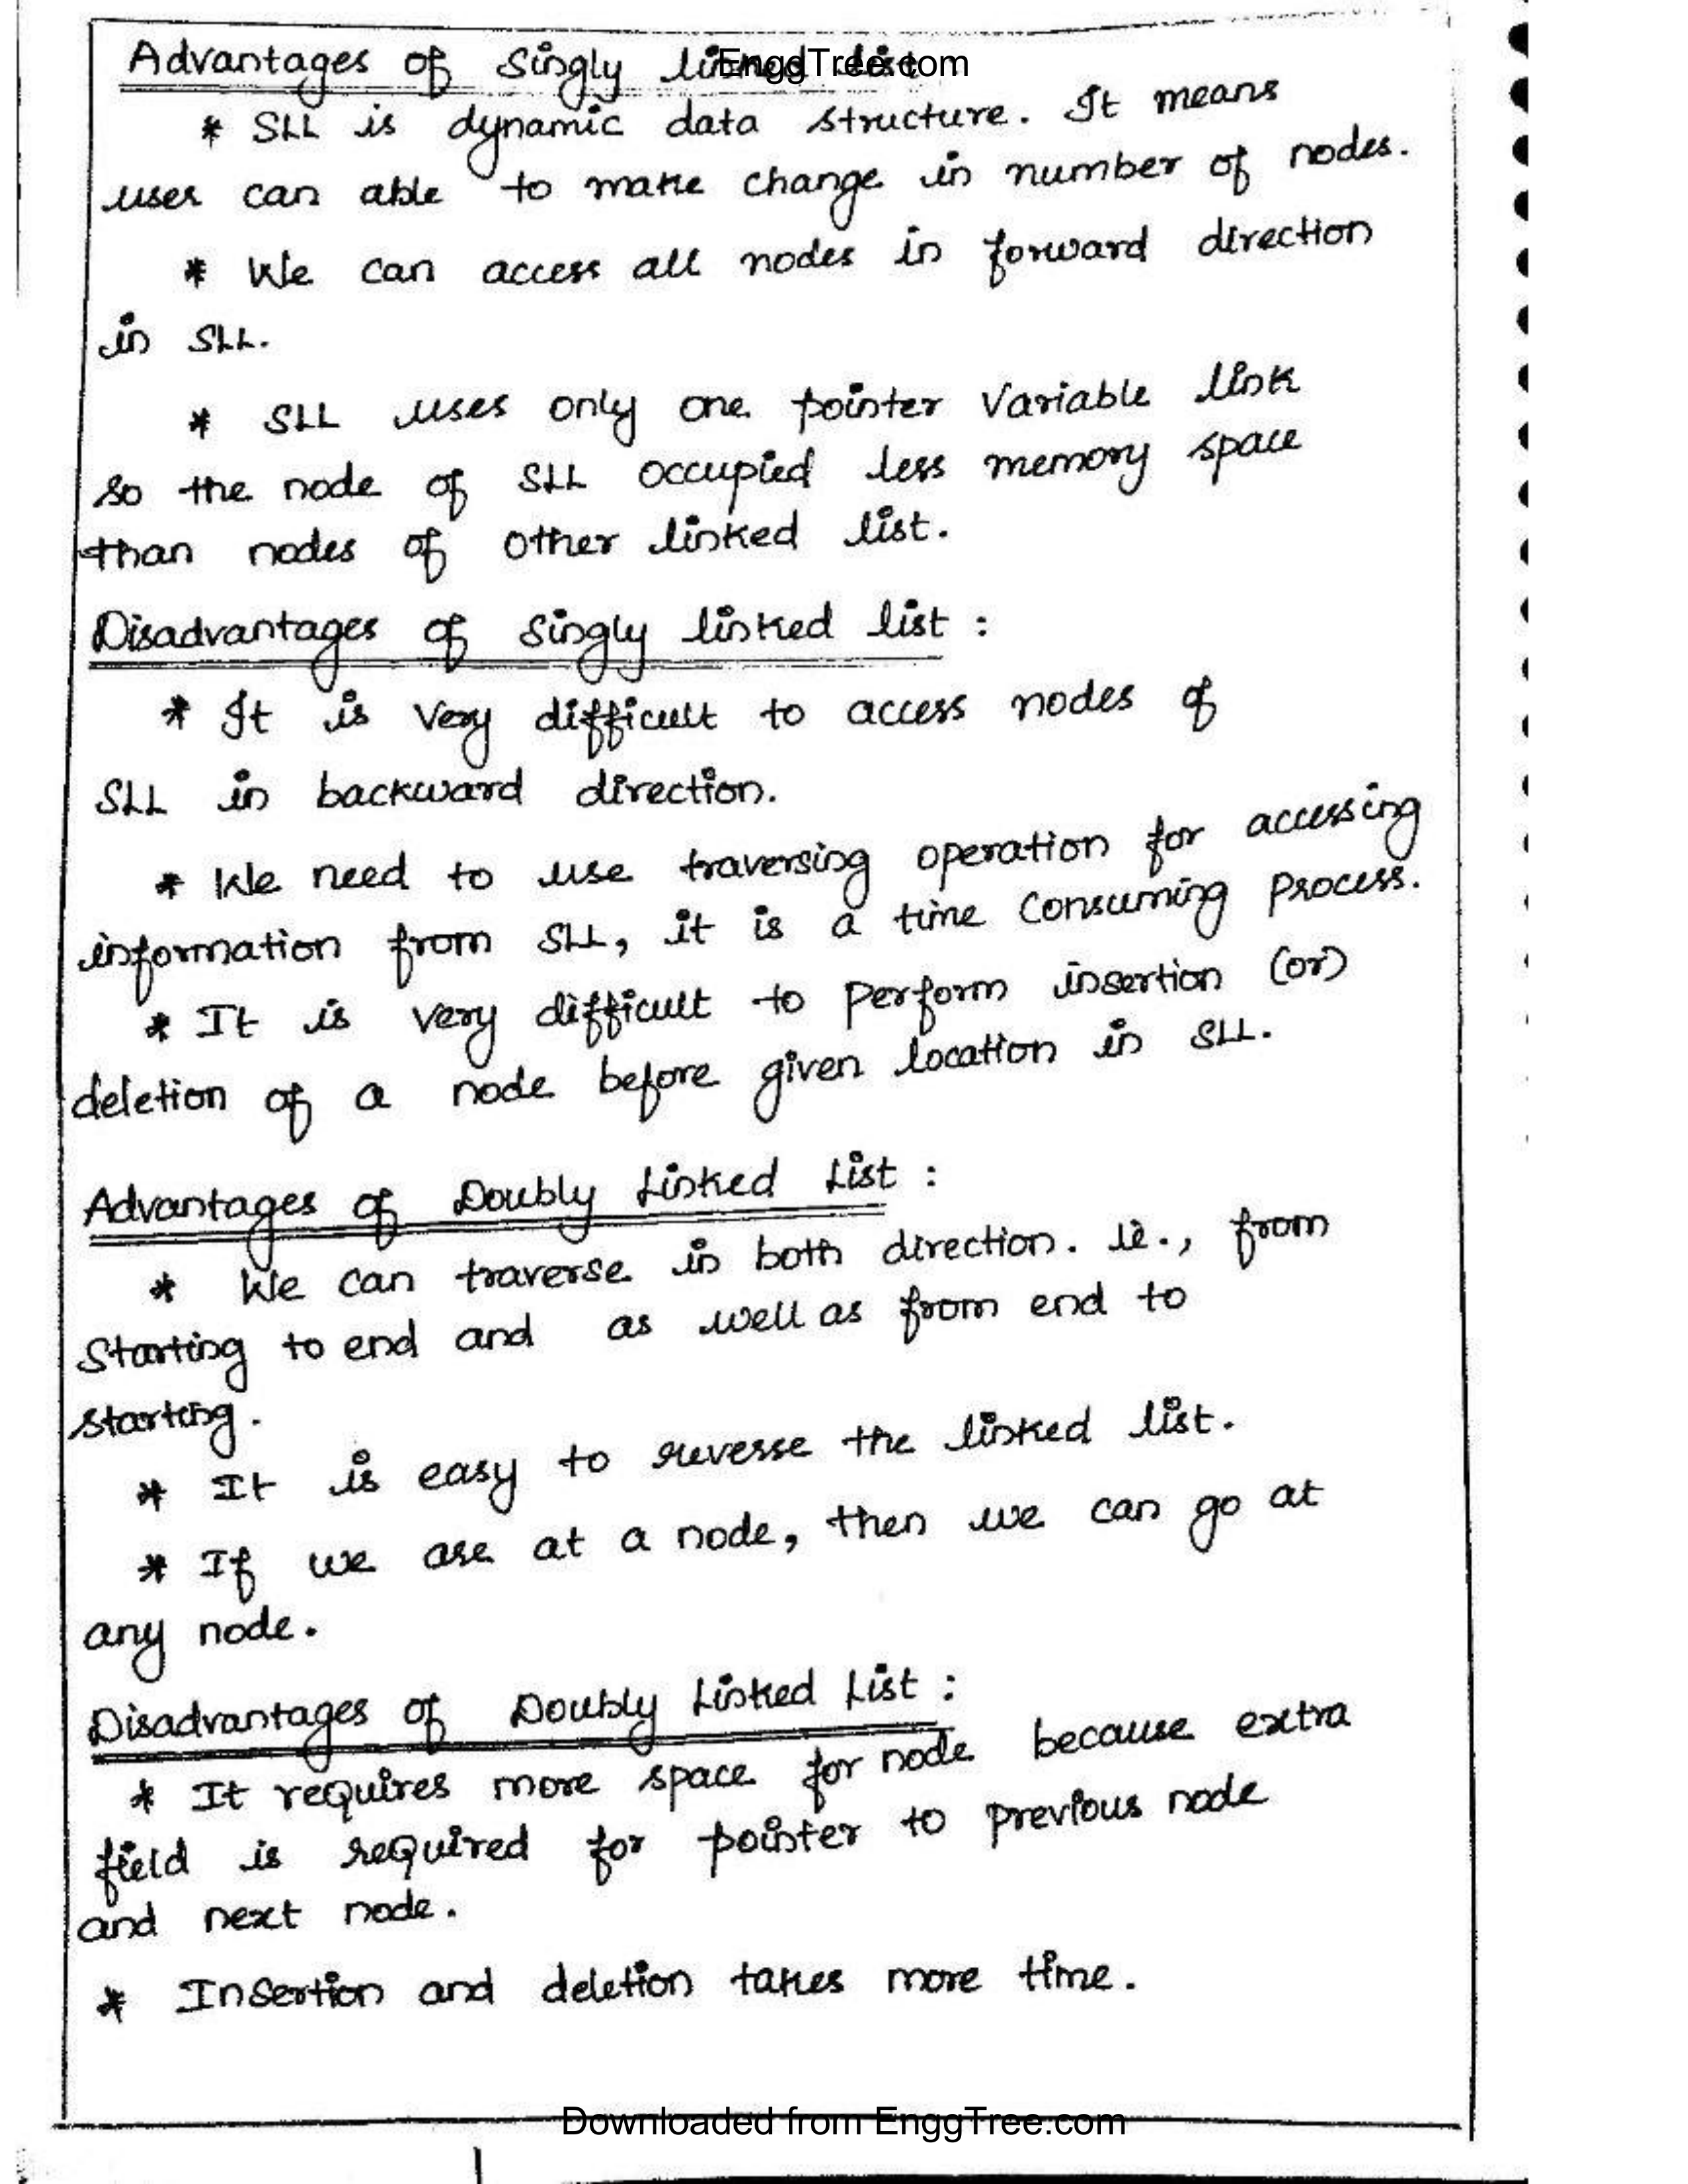 EnggTree.com
Advantages of Singly linked list
* SLL is dynamic data structure. It means
user can able to make change in number of nodes.
* We can access all nodes in forward direction
in SLL.
* SLL uses only one pointer variable link
so the node of SLL occupied less memory space
than nodes of other linked list.
Disadvantages of Singly linked list :
* It is very difficult to access nodes of
SLL in backward direction.
* We need to use traversing operation for accessing
information from SLL, it is a time consuming process.
* It is very difficult to perform insertion (or)
deletion of a node before given location in SLL.
Advantages of Doubly Linked List :
* We can traverse in both direction. ie., from
starting to end and as well as from end to
starting.
* It is easy to reverse the linked list.
* If we are at a node, then we can go at
any node.
Disadvantages of Doubly Linked List :
* It requires more space for node because extra
field is required for pointer to previous node
and next node.
* Insertion and deletion takes more time.
Downloaded from EnggTree.com